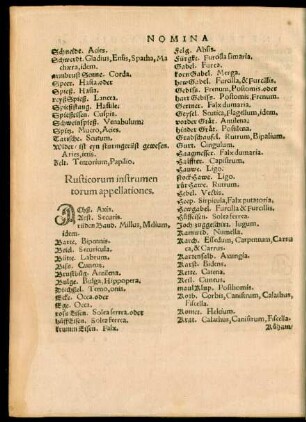 NOMINA
Schneide. Acies.
Schwerdt. Gladius, Ensis, Spatha, Ma
chæra, idem.
Senne. Corda.
Speer. Hasta, oder
Spieß. Hasta.
Spieß. Lancea.
Spießstang. Hastile.
Spießeisen. Cuspis.
Schweinspieß. Venabulum:
Spitz. Mucro, Acies.
Tartsche. Scutum.
Wider: ist eyn sturmgerüst gewesen
Aries, enis.
Zelt. Tentorium, Papilio.
Rusticorum instrumen
torum appellationes.
AChß. Axis.
Axst. Securis.
Band. Millus, Mellum,
idem.
Barte. Bipennis.
Beiel. Securicula.
Bütte. Labrum.
Cuneus.
Antilena.
Bulge. Bulga, Hippopera.
Deichsel. Temo, onis.
Ecke. Occa oder
Ege. Occa.
roß Eisen. Solea ferrea, oder
hůff Eisen. Solea ferrea.
krumm Eisen. Falx.
Felg. Absis.
Gabel. Furca.
korn Gabel. Merga.
hew Gabel. Furcilla, & Furcillis.
Gebiß. Frenum, Postomis. oder
hart Gebiß. Postomis, Frenum.
Gertner. Falx dumaria.
Geysel. Scutica, Flagellum, idem.
vorder Grät. Antilena.
hinder Grät. Postilena.
Grabschauffel. Rutrum, Bipalium.
Gurt. Cingulum.
Haagmesser. Falx dumaria.
Halffter. Capistrum.
Hauwe. Ligo.
Hawe. Ligo.
Hawe. Rutrum.
Hebel. Vectis.
Heep. Sirpicula, Falx putatoria.
Hewgabel. Furcilla & Furcillis.
Hůffeisen. Solea ferrea.
Joch Iugum.
Numella.
Karch. Essedum, Carpentum, Carru
ca, & Carrus.
Karrensalb. Axungia.
Karst. Bidens.
Kette. Catena.
Keil. Cuneus.
maul Postomis.
Korb. Corbis, Canistrum, Calathus,
Fiscella.
Helcium.
Calathus, Canistrum, Fiscella.